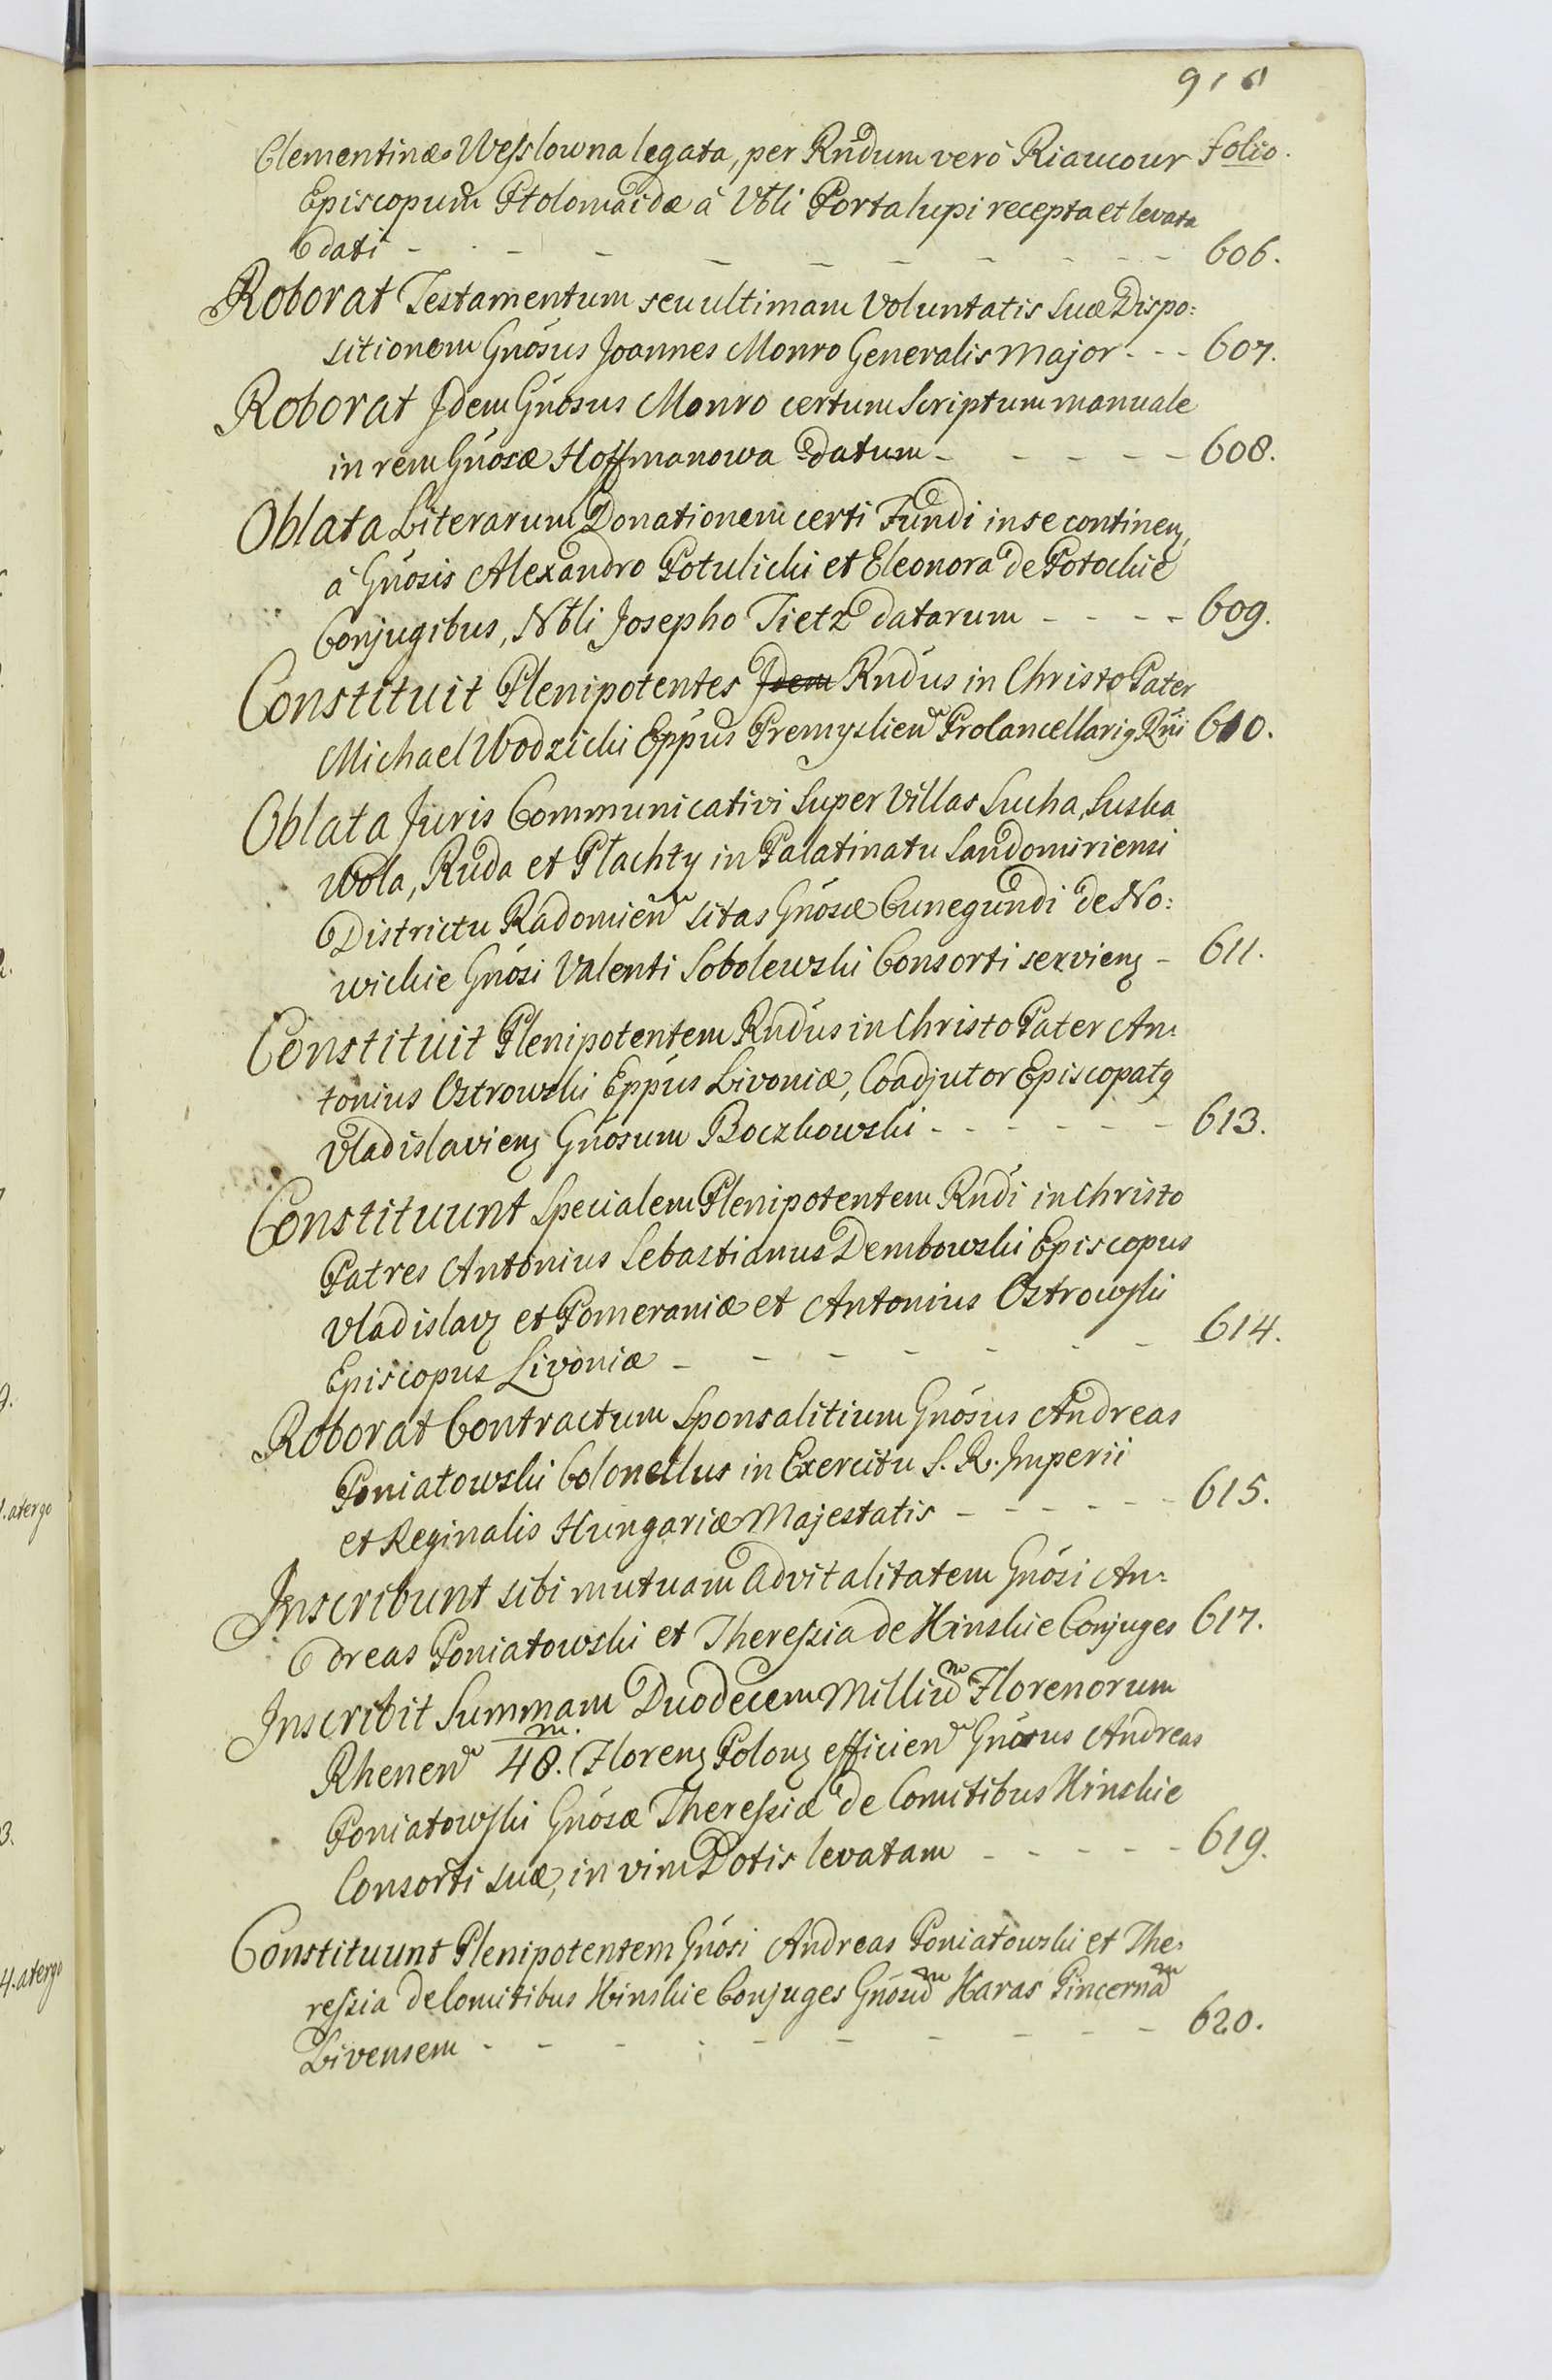 916
Clementinæ Wesslowna legata, per Rñdum verò Riaucour Folio.
Episcopum Ptolomaidæ à Vbli Portalupi recepta et levata
dati - - - - - - - - - 606.
Roborat Testamentum seu ultimam Voluntatis suæ Dispo:
sitionem Gñosus Joannes Monro Generalis Major - - - 607.
Roborat Idem Gñosus Monro certum Scriptum manuale
in rem Gñosæ Hoffmanowa datum - - - - - 608.
Oblata Literarum Donationem certi Fundi in se continenꝫ,
à Gñosis Alexandro Potulicki et Eleonora de Potockie
Conjugibus, Nbli Josepho Tietz datarum - - - - 609.
Constituit Plenipotentes Idem Rndus in Christo Pater
Michael Wodzicki Eppus Premyslien Procancellariꝯ Rñi 610.
Oblata Juris Communicativi super Villas Sucha, Suska
Wola, Ruda et Płachty in Palatinatu Sandomiriensi
Districtu Radomien sitas Gñosæ Cunegundi de No:
wickie Gñosi Valenti Sobolewski Consorti servienꝫ - 611.
Constituit Plenipotentem Rndus in Christo Pater An:
tonius Ostrowski Eppus Livoniæ, Coadjutor Episcopatꝯ
Vladislavienꝫ Gñosum Boczkowski - - - - - - 613.
Constituunt Specialem Plenipotentem Rndi in Christo
Patres Antonius Sebastianus Dembowski Episcopus
Vladislavꝫ et Pomeraniæ et Antonius Ostrowski
Episcopus Livoniæ - - - - - - - 614.
Roborat Contractum Sponsalitium Gñosus Andreas
Poniatowski Colonellus in Exercitu S. R. Imperii
et Reginalis Hungariæ Majestatis - - - - - - 615.
Inscribunt sibi mutuam Advitalitatem Gñosi An:
dreas Poniatowski et Theressia de Kinskie Conjuges 617.
Inscribit Summam Duodecem Milliũm Florenorum
Rhenen 48.m Florenꝫ Polonꝫ efficien Gñosus Andreas
Poniatowski Gñosæ Theressiæ de Comitibus Kinskie
Consorti suæ, in vim Dotis levatam - - - - - 619.
Constituunt Plenipotentem Gñosi Andreas Poniatowski et The:
ressia de Comitibus Kinskie Conjuges Gñosum Karas Pincernam
Livensem - - - - - - - - - 620.